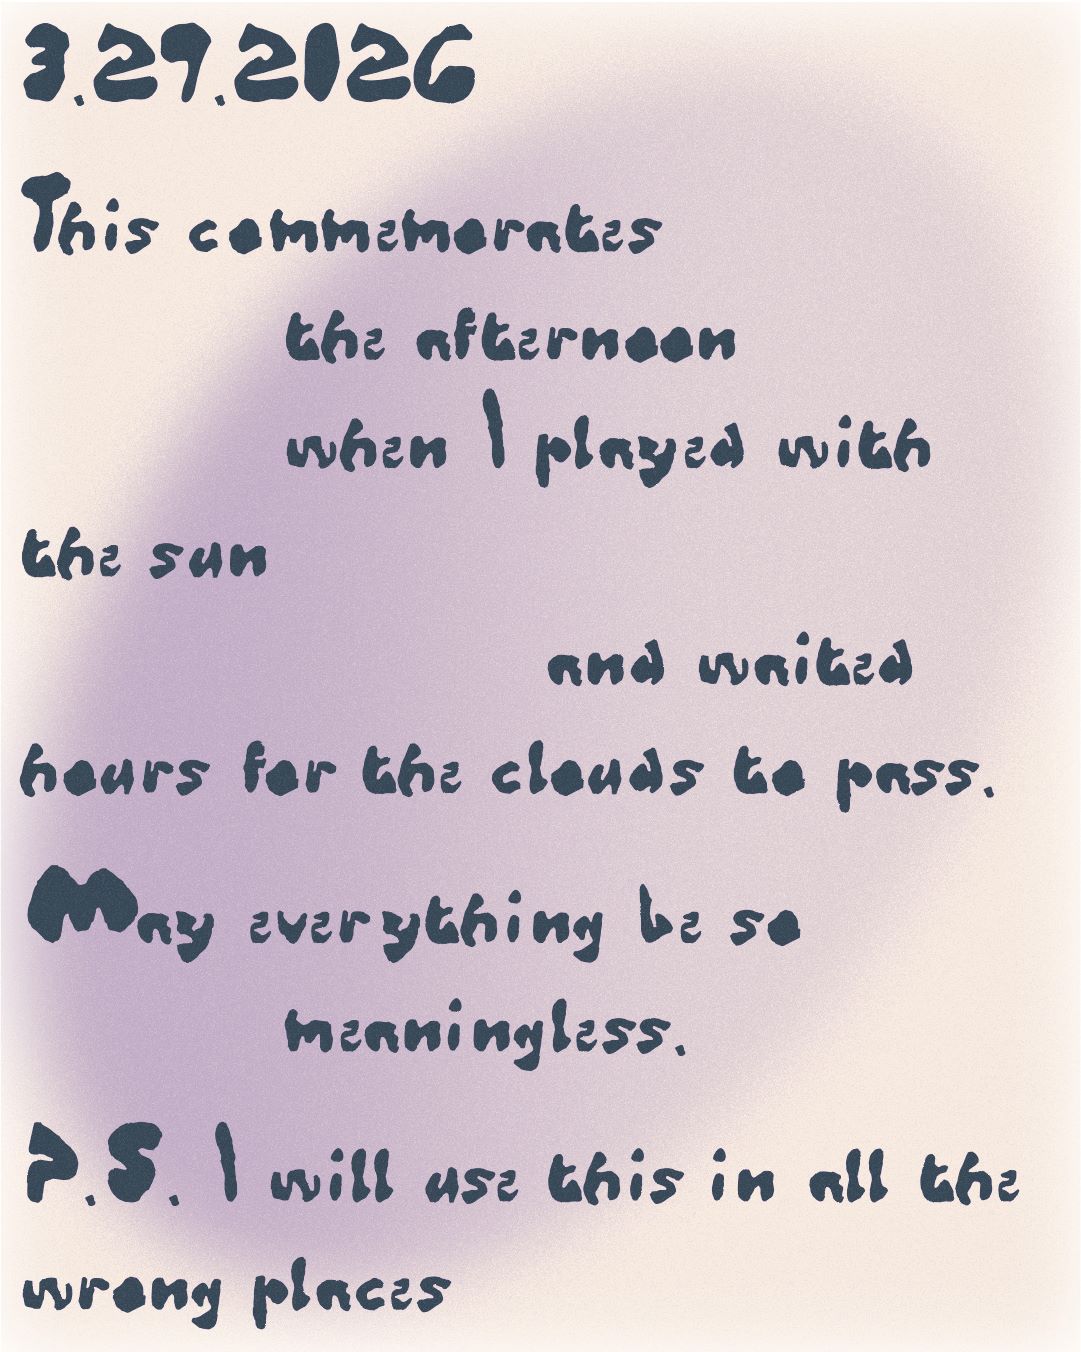 3.29.2026
This commemorates
the afternoon
when I played with
the sun
and waited
hours for the clouds to pass.
May everything be so
meaningless.
P.S. I will use this in all the
wrong places